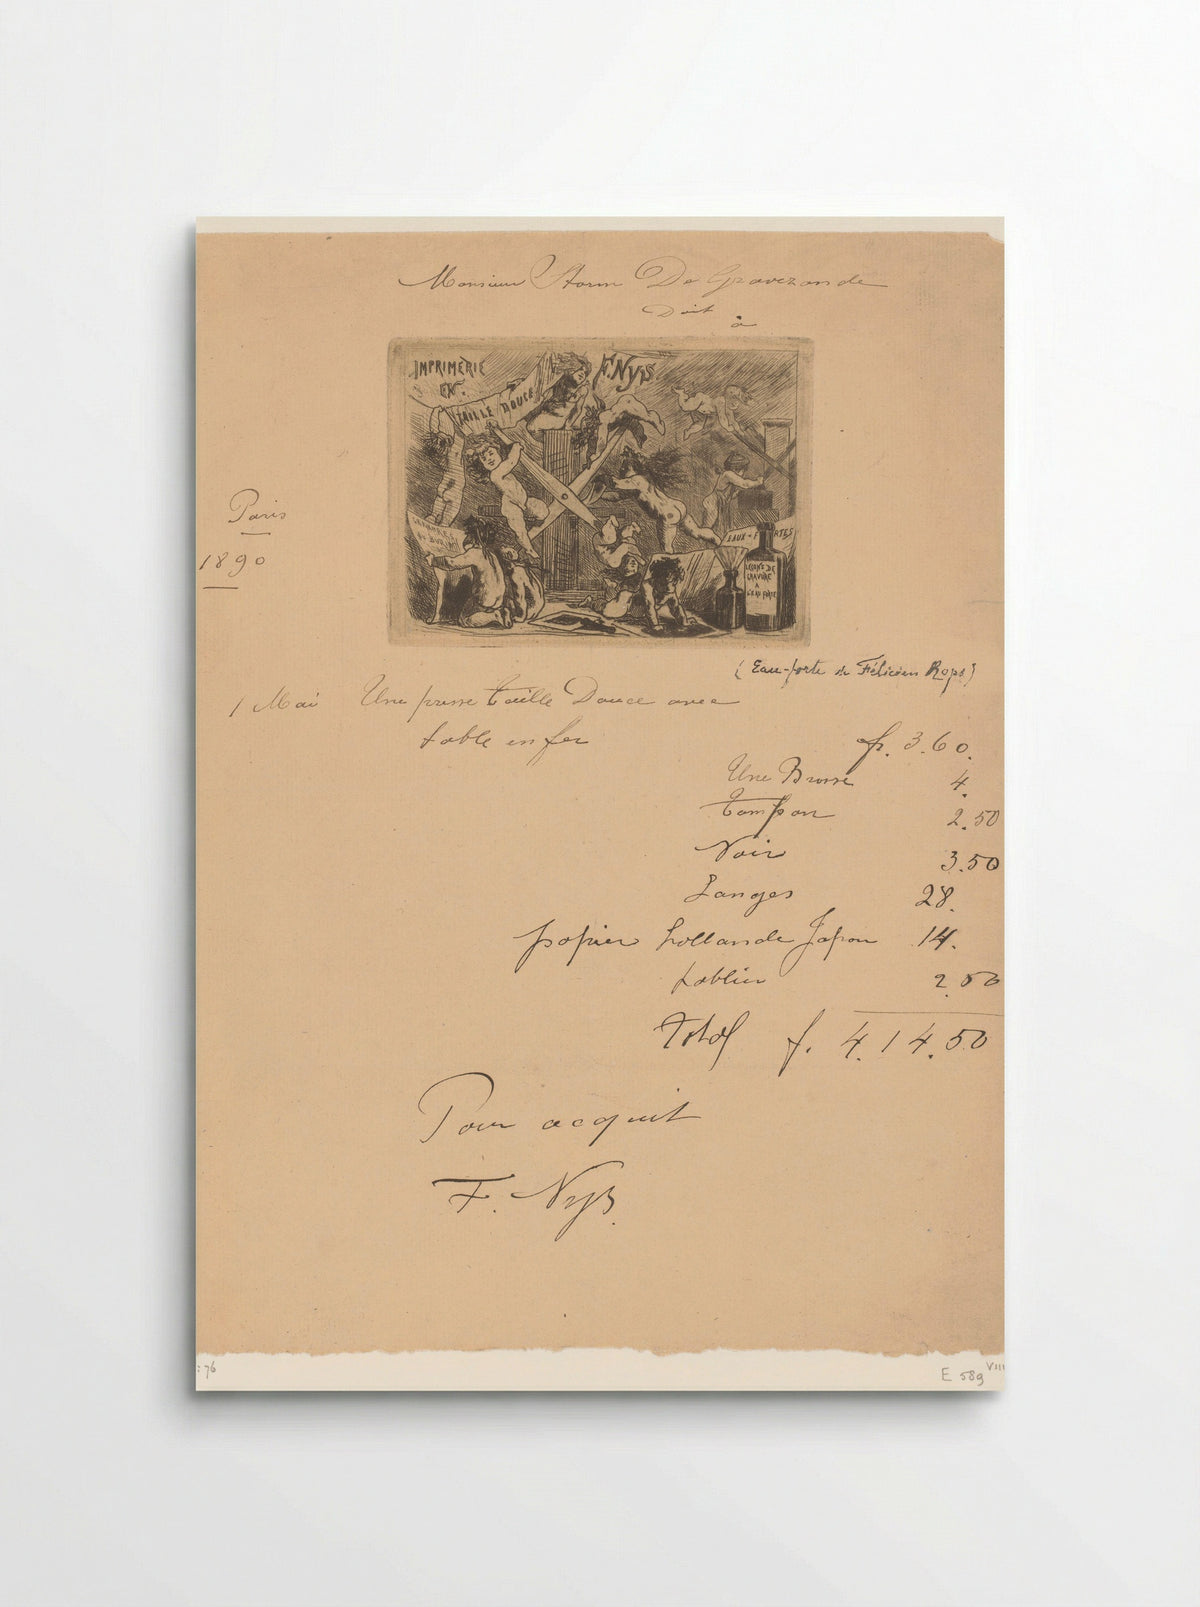 Monsieur Storm De Gravezande
Doit
à
IMPRIMERIE
EN
TAILLE DOUCE
F. NYS
Paris
1890
AU BURIN
EAUX-FORTES
LEÇONS DE
GRAVURE
A
L'EAU FORTE
(Eau-forte de Félicien Rops)
1 Mai Une presse taille Douce avec
table en fer fr. 3.60.
Une Brosse 4.
tampon 2.50
Noir 3.50
Langes 28.
papier hollande Japon 14.
tablier 2.50
Total f. 4.14.50
Pour acquit
F. Nys.
:76
E 589 VIII